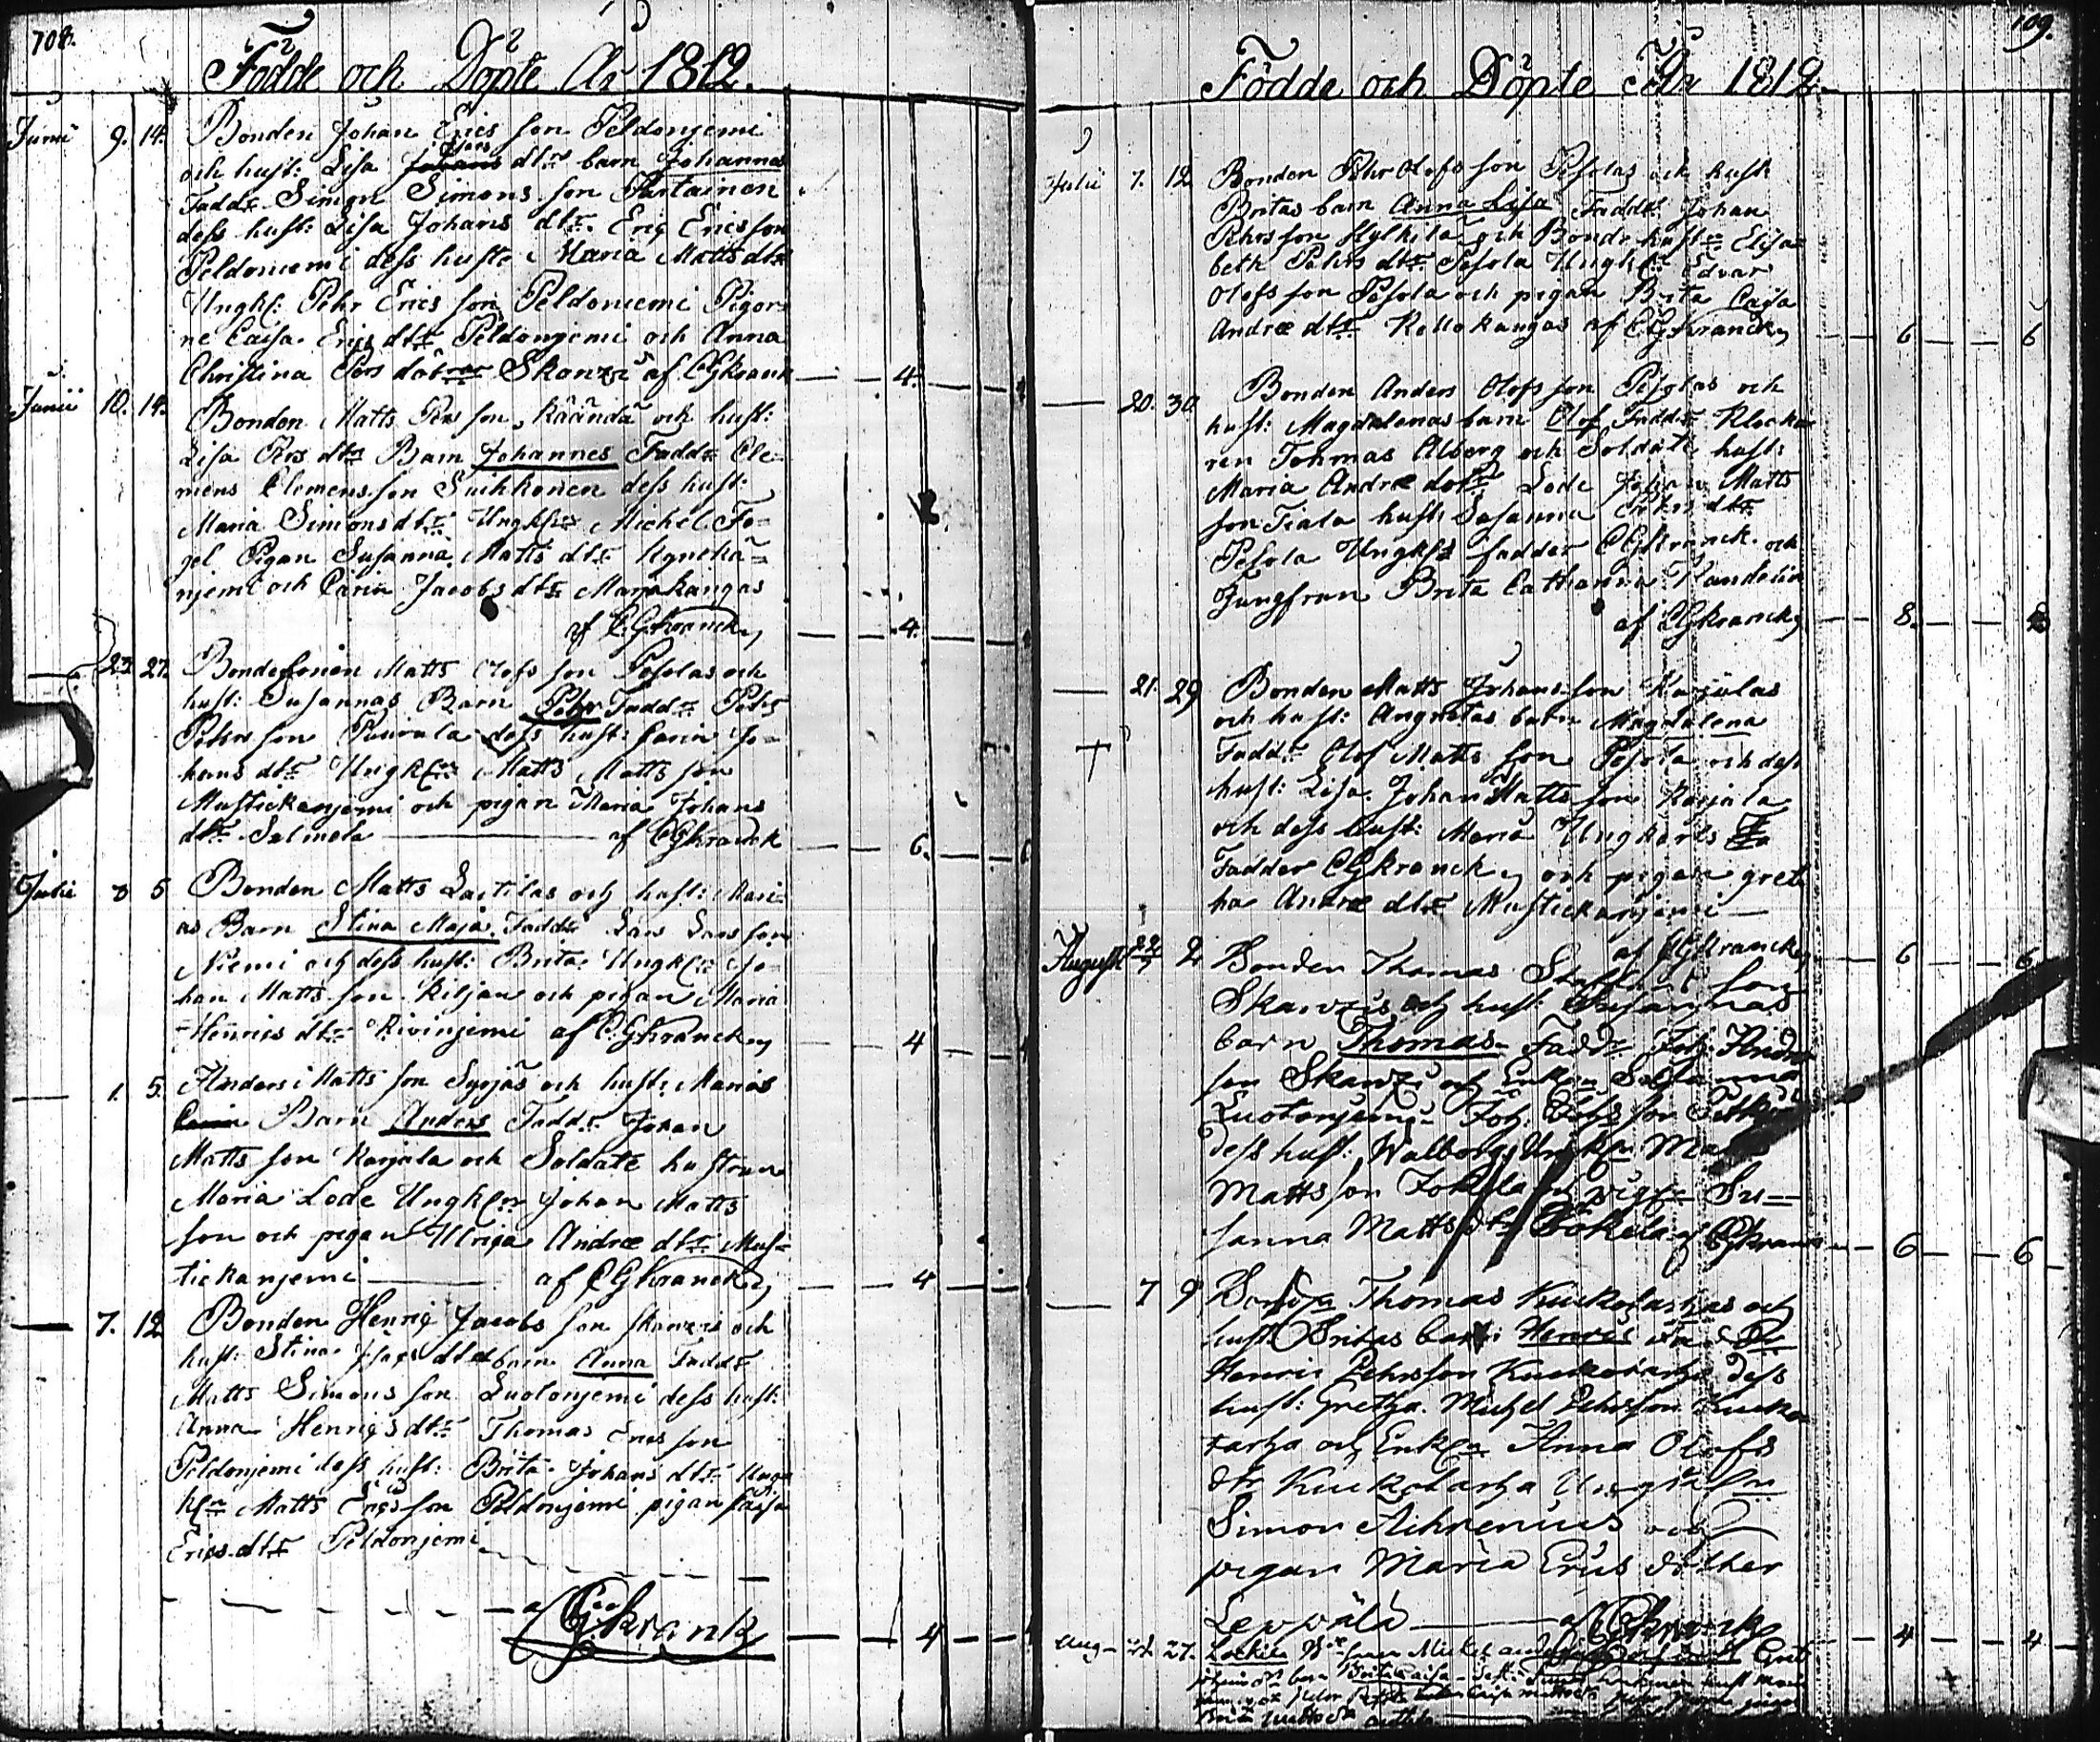 708.
Födde och Döpte År 1812.
Junii 9. 14. Bonden Johan Erics son Peldonjemi
och hust: Lisa Johans dtr barn Johannes
Faddr Simon Simons son Partainen
dess hust: Lisa Johans dtr. Eriq Ericsson
Peldoniemi dess hustr Maria Matts dtr
Ungk: Pehr Erics son Peldoniemi Pigor
ne Caisa Erics dtr Peldonjemi och Anna
Christina Pers dötrar Skanzi af CGKrank 4.
Junii 10. 14. Bonden Matts Pers son Käändä och hust:
Lisa Pers dtr Barn Johannes Faddr Cle=
mens Clemensson Suihkonen dess hust:
Maria Simons dtr Ungkrn Michel Fo=
gel Pigan Susanna Matts dtr
njemi och Carin Jacobs dtr Marakangas
af CGKranck 4.
23. 27. Bondesonen Matts Olofs son Pesolas och
hust: Susannas Barn Pehr Faddr Pehr
Pehrs son Puurula dess hust: Carin Jo=
hans dtr Ungkrn Matts Matts son
Mustickanjemi och pigan Maria Johans
dtr Salmela af CGKranck 6.
Julii 3 5 Bonden Matts Lastilas och hust: Mari=
as Barn Stina Maja. Faddr Lars Larsson
Niemi och dess hust: Brita Ungkrn Jo=
han Matts son Kiljan och pigan Maria
Henrics dtr Kivinjemi af CGKranck 4
1. 5. Anders Matts son Syrjäs och hust: Marias
Barn Anders Faddr Johan
Matts son Karjala och Soldate hustrun
Maria Lode Ungkrn Johan Matts
son och pigan Ulriqa Andræ dtr Mus=
tickanjemi af CGKranck 4
7. 12 Bonden Henriq Jacobs son Skanzis och
hust: Stina dtrs barn Anna Faddr
Matts Simons son Luotonjemi dess hust:
Anna Henrics dtr Thomas Erics son
Peldonjemi dess hust: Brita Johans dtr Ung
krn Matts Erics son Peldonjemi pigan Caisa
Erics dtr Peldonjemi
af CGKrank 4
109.
Födde och Döpte År 1812.
Julii 7. 12 Bonden Pehr Olofs son Pesolas och hust:
Britas barn Anna Lisa Faddr Johan
Pehrs son Kylkilä och Bonde hustr Elisa=
beth Pehrs dtr Pesola Ungkrn Edvar
Olofs son Pesola och pigan Brita Caisa
Andræ dtr Kollokangas af CGKranck 6 6
20. 30. Bonden Anders Olofs son Pesolas och
hust: Magdalenas barn Olof Faddr Klocka
ren Tohmas Alberg och Soldate hust:
Maria Andræ dotr Lode Johan Matts
son Tiala hust: Susanna Pehrs dtr
Pesola Ungkrs fadder CGKranck och
Jungfrun Brita Catharina Planshelin
af CGKranck 8.
21. 29 Bonden Matts Johans son Karjulas
och hust: Angnetas barn Magdalena
Faddr Olof Matts son Pesola och dess
hust: Lisa. Johan Matts son Karjala
och dess hust: Maria Ungkarls
Fadder CGKranck och pigan gret
ha Andræ dtr Mustickanjemi
af CGKranck 6 6
Augusti 22/7 2 Bonden Thomas son
Skanzis och hust Susannas
barn Thomas Faddr Joh: Andr
son Skanzi och Enkan Susanna
Luotonjemi Joh: Olofs son
dess hust: Walborg Ungkrn Matts
Mattsson Tokela och pign Su=
sanna Matts dtr Tokela af CGKranck 6 6
7 9 Bonden Thomas Kuckotarhas och
hust Britas barn Henric Faddr
Henric Pehrsson Kuckotarha dess
hust: Gretha. Michel Pehrsson Kucko
tarha och Enkan Anna Olofs
dtr Kuckotarha Ungkarln
Simon Aihrenius och
pigan Maria Erics dotter
Leppälä af CGKranck 4 4
Aug 27.